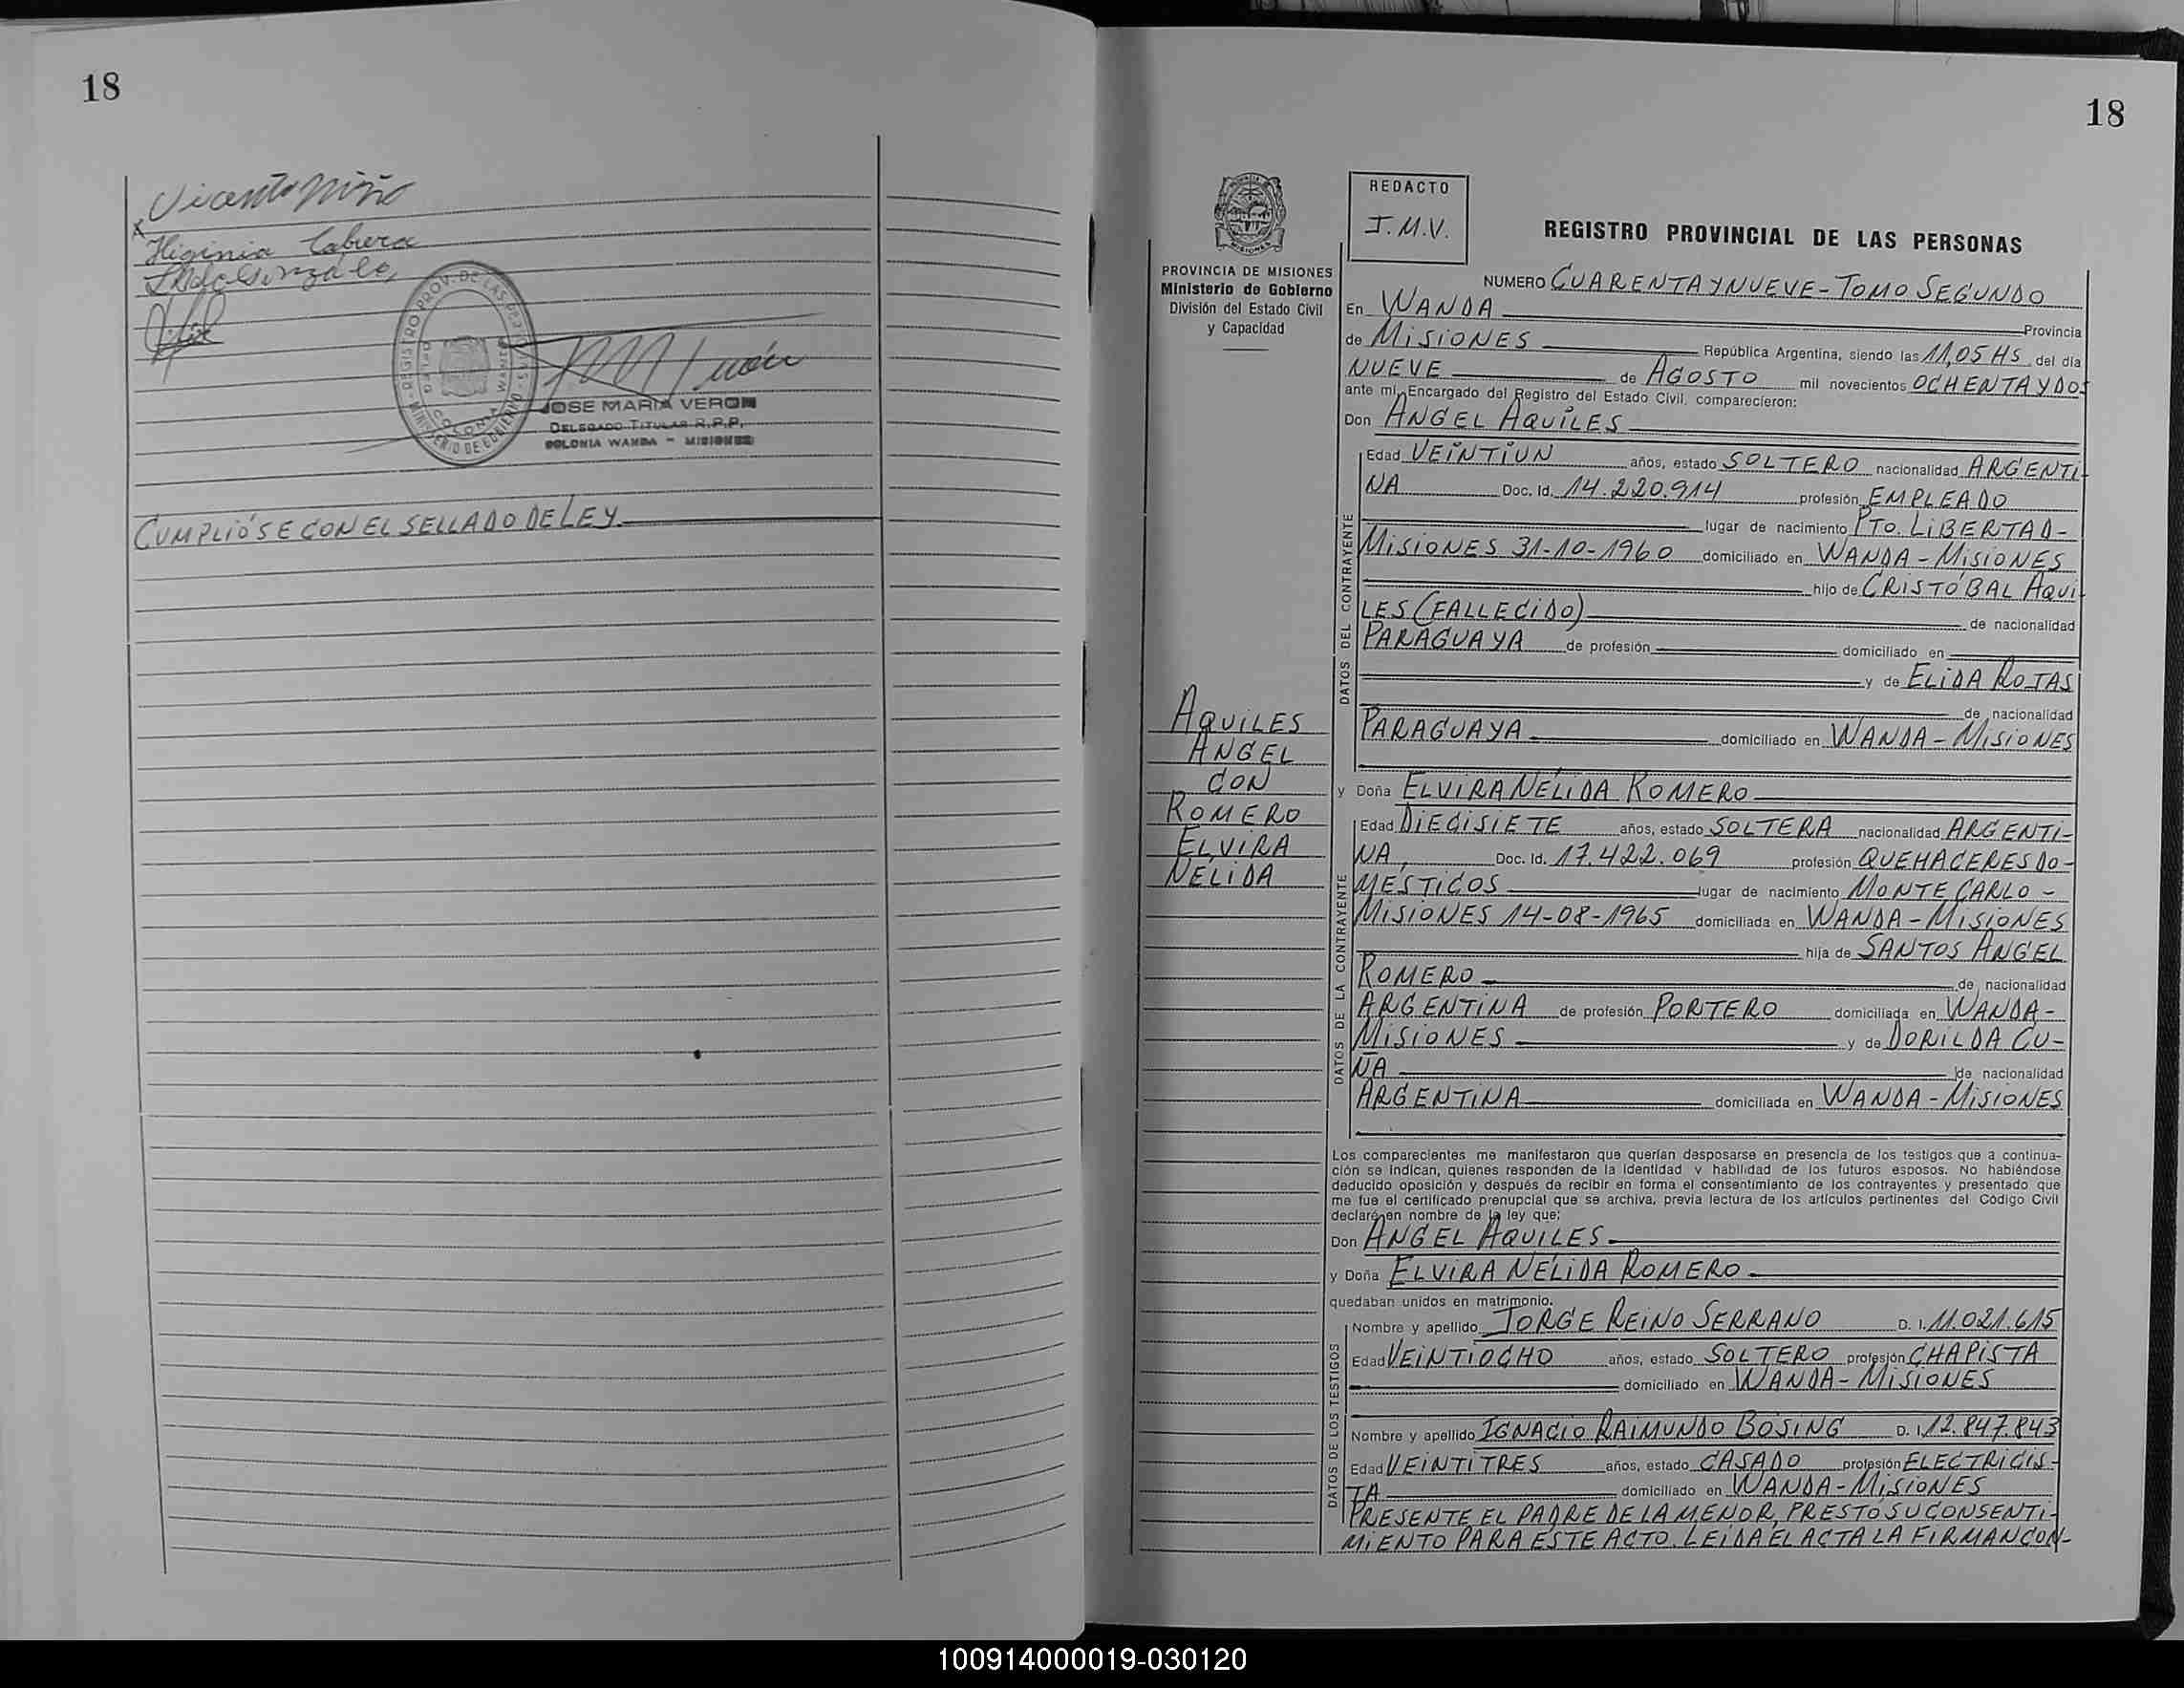 18
Vicente Niño
x
Higinia Cabrera
REGISTRO PROV. DE LAS PERSONAS - MINISTERIO DE GOBIERNO
COLONIA WANDA
JOSE MARIA VERON
DELEGADO TITULAR R.P.P.
COLONIA WANDA - MISIONES
CUMPLIÓSE CON EL SELLADO DE LEY
18
PROVINCIA DE MISIONES
Ministerio de Gobierno
División del Estado Civil
y Capacidad
REDACTO
J.M.V.
REGISTRO PROVINCIAL DE LAS PERSONAS
NUMERO CUARENTA Y NUEVE - TOMO SEGUNDO
En WANDA Provincia
de MISIONES República Argentina, siendo las 11,05 HS del día
NUEVE de AGOSTO mil novecientos OCHENTA Y DOS
ante mí, Encargado del Registro del Estado Civil, comparecieron:
Don ANGEL AQUILES
DATOS DEL CONTRAYENTE
Edad VEINTIUN años, estado SOLTERO nacionalidad ARGENTI-
NA Doc. Id. 14.220.914 profesión EMPLEADO
lugar de nacimiento PTO. LIBERTAD-
MISIONES 31-10-1960 domiciliado en WANDA - MISIONES
hijo de CRISTÓBAL AQUI-
LES (FALLECIDO) de nacionalidad
PARAGUAYA de profesión domiciliado en
y de ELIDA ROJAS
de nacionalidad
PARAGUAYA domiciliado en WANDA - MISIONES
AQUILES
ANGEL
CON
ROMERO
ELVIRA
NÉLIDA
y Doña ELVIRA NÉLIDA ROMERO
DATOS DE LA CONTRAYENTE
Edad DIECISIETE años, estado SOLTERA nacionalidad ARGENTI-
NA, Doc. Id. 17.422.069 profesión QUEHACERES DO-
MÉSTICOS lugar de nacimiento MONTE CARLO -
MISIONES 14-08-1965 domiciliada en WANDA - MISIONES
hija de SANTOS ANGEL
ROMERO de nacionalidad
ARGENTINA de profesión PORTERO domiciliada en WANDA -
MISIONES y de DORILDA CU-
ÑA de nacionalidad
ARGENTINA domiciliada en WANDA - MISIONES
Los comparecientes me manifestaron que querían desposarse en presencia de los testigos que a continua-
ción se indican, quienes responden de la identidad y habilidad de los futuros esposos. No habiéndose
deducido oposición y después de recibir en forma el consentimiento de los contrayentes y presentado que
me fue el certificado prenupcial que se archiva, previa lectura de los artículos pertinentes del Código Civil
declaré en nombre de la ley que:
Don ANGEL AQUILES
y Doña ELVIRA NÉLIDA ROMERO
quedaban unidos en matrimonio.
DATOS DE LOS TESTIGOS
Nombre y apellido JORGE REINO SERRANO D. I. 11.021.615
Edad VEINTIOCHO años, estado SOLTERO profesión CHAPISTA
domiciliado en WANDA - MISIONES
Nombre y apellido IGNACIO RAIMUNDO BOSING D. I. 12.847.843
Edad VEINTITRES años, estado CASADO profesión ELECTRICIS-
TA domiciliado en WANDA - MISIONES
PRESENTE EL PADRE DE LA MENOR, PRESTÓ SU CONSENTI-
MIENTO PARA ESTE ACTO. LEIDA EL ACTA LA FIRMAN CON-
100914000019-030120